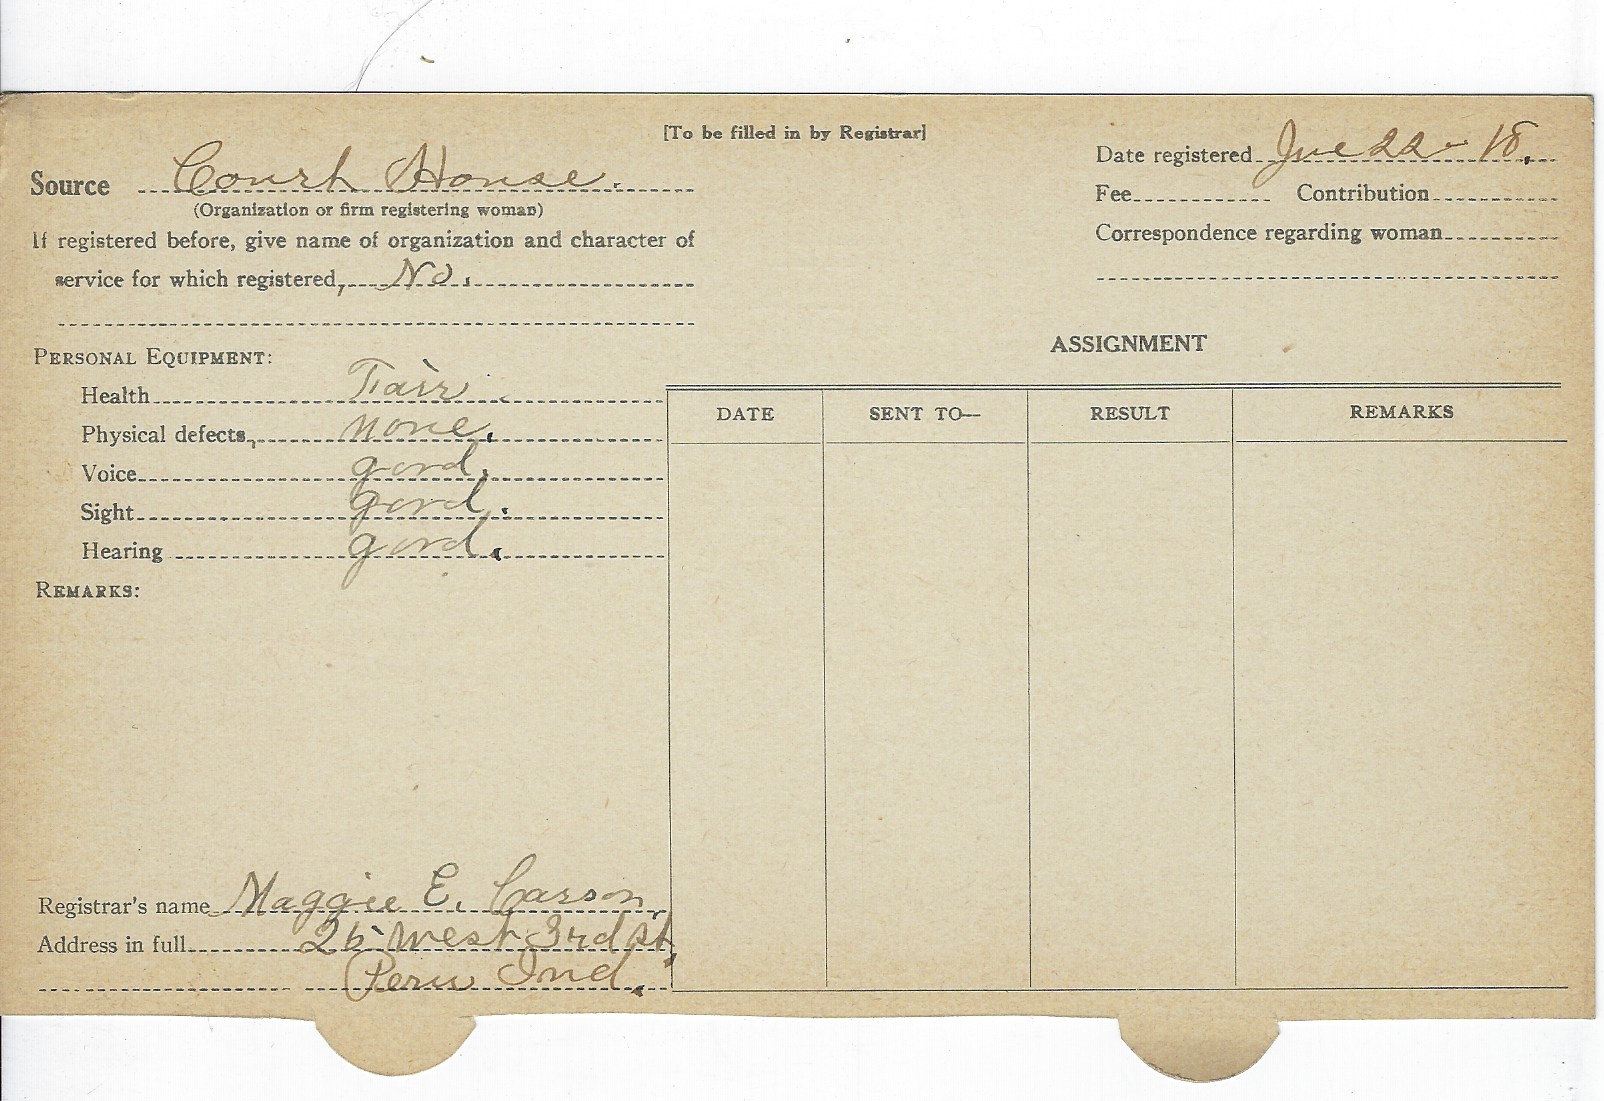 [To be filled in by Registrar]
Source Court House.
(Organization or firm registering woman)
If registered before, give name of organization and character of
service for which registered, No.
Date registered Jue 22 - 18.
Fee Contribution
Correspondence regarding woman
PERSONAL EQUIPMENT:
Health Fair.
Physical defects, none.
Voice good.
Sight good.
Hearing good.
REMARKS:
ASSIGNMENT
DATE SENT TO— RESULT REMARKS
Registrar's name Maggie E. Carson.
Address in full 26 West 3rd St.
Peru Ind.